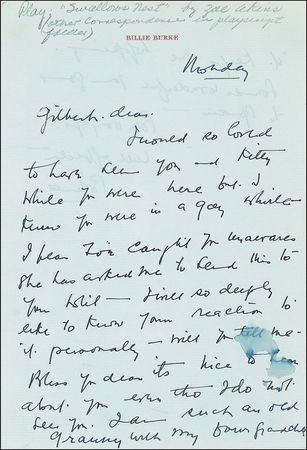 Play: "Swallows Nest" by Zoe Akins
(other correspondence in playscript
folder)
BILLIE BURKE
Monday
Gilbert. dear.
I would so loved
to have seen you and Kitty
while you were here but I
know you were in a gay whirl –
I fear Zoë caught you unawares
She has asked me to send this to
you which – I will so deeply
like to know your reaction to
it personally – will you tell me –
Bless you dear its nice to hear
about you even tho I do not
see you. I am such an old
Granny with my four grandch